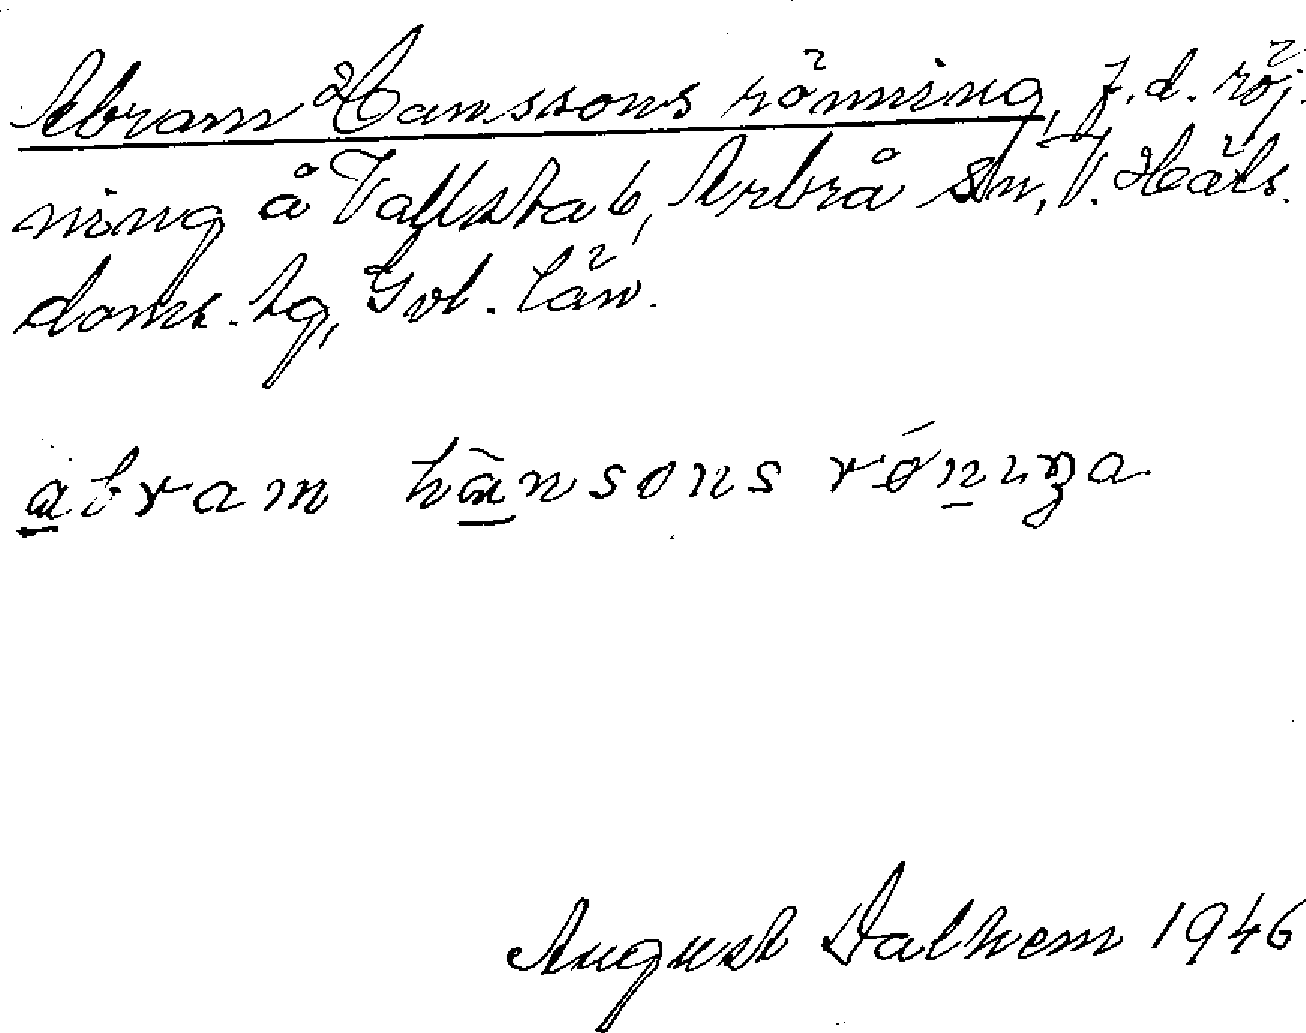 Abram Hanssons rönning, f.d. röj-
ning å Vallsta 6, Arbrå sn, V. Häls.
doms. tg, Gvl. län.
abram hānsons rǿnıŋa
August Dalhem 1946